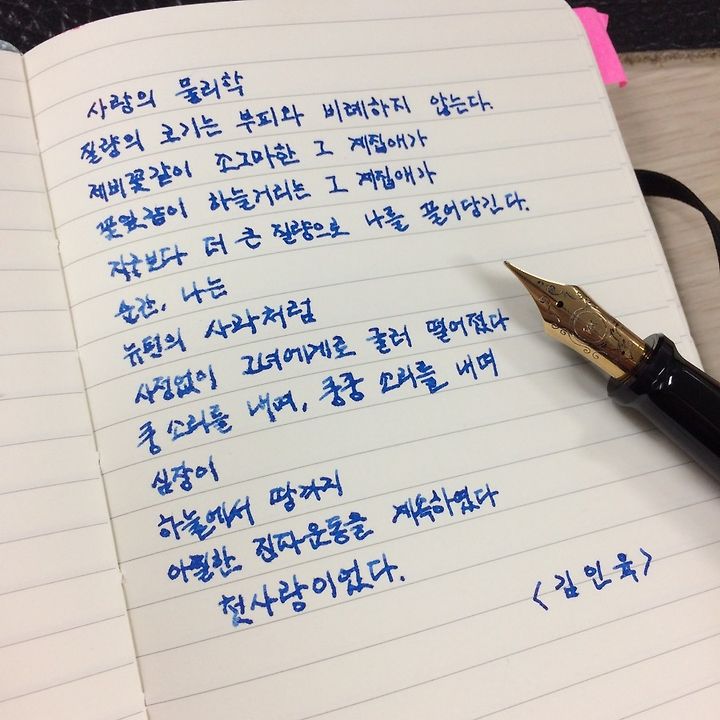 사랑의 물리학
질량의 크기는 부피와 비례하지 않는다.
제비꽃같이 조그마한 그 계집애가
꽃잎같이 하늘거리는 그 계집애가
지구보다 더 큰 질량으로 나를 끌어당긴다.
순간, 나는
뉴턴의 사과처럼
사정없이 그녀에게로 굴러 떨어졌다
쿵 소리를 내며, 쿵쿵 소리를 내며
심장이
하늘에서 땅까지
아찔한 진자운동을 계속하였다
첫사랑이었다.
<김인육>